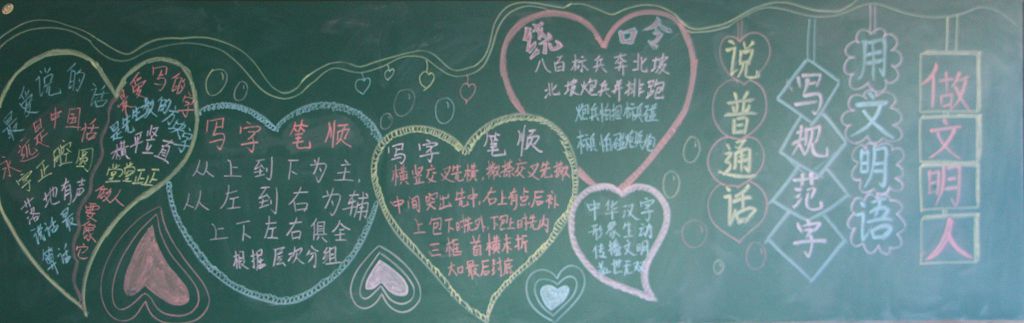 最爱说的话
永远是中国话
字正腔圆
落地有声
说话最算话
最爱写的字
是先生教的方块字
横平竖直
堂堂正正
写字笔顺
从上到下为主,
从左到右为辅
上下左右俱全
根据层次分组
写字笔顺
横竖交叉先横,撇捺交叉先撇
中间突出先中,右上有点后补
上包下时先外,下包上时先内
三框首横末折
大口最后封底
绕口令
八百标兵奔北坡
北坡炮兵并排跑
炮兵怕把标兵碰
标兵怕碰炮兵炮
中华汉字
形象生动
传播文明
说普通话
写规范字
用文明语
做文明人